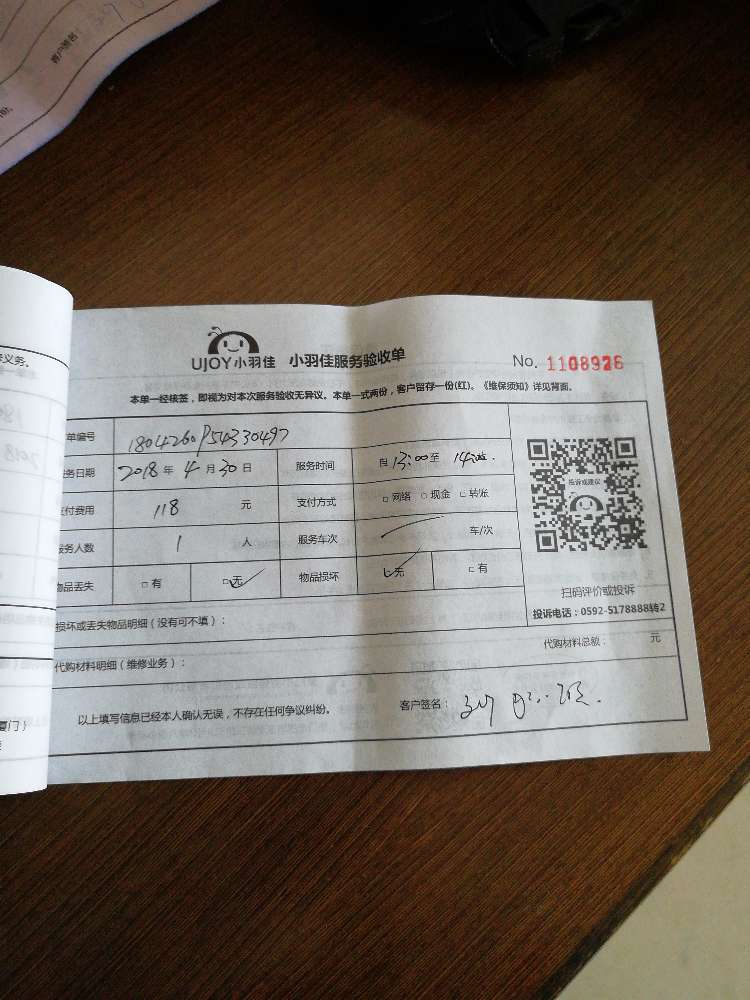 客户签名：
UJOY小羽佳 小羽佳服务验收单 No. 1108926
本单一经核签，即视为对本次服务验收无异议。本单一式两份，客户留存一份(红)。《维保须知》详见背面。
单编号 1804260P54330497
务日期 2018年4月30日 服务时间 自 13:00 至
付费用 118 元 支付方式 □网络 □现金 □转账
服务人数 1 人 服务车次 车/次
物品丢失 □有 □无 物品损坏 □无 □有
投诉或建议
扫码评价或投诉
投诉电话：0592-5178888转2
损坏或丢失物品明细（没有可不填）：
代购材料明细（维修业务）： 代购材料总额： 元
以上填写信息已经本人确认无误，不存在任何争议纠纷。 客户签名：
义务。
厦门）